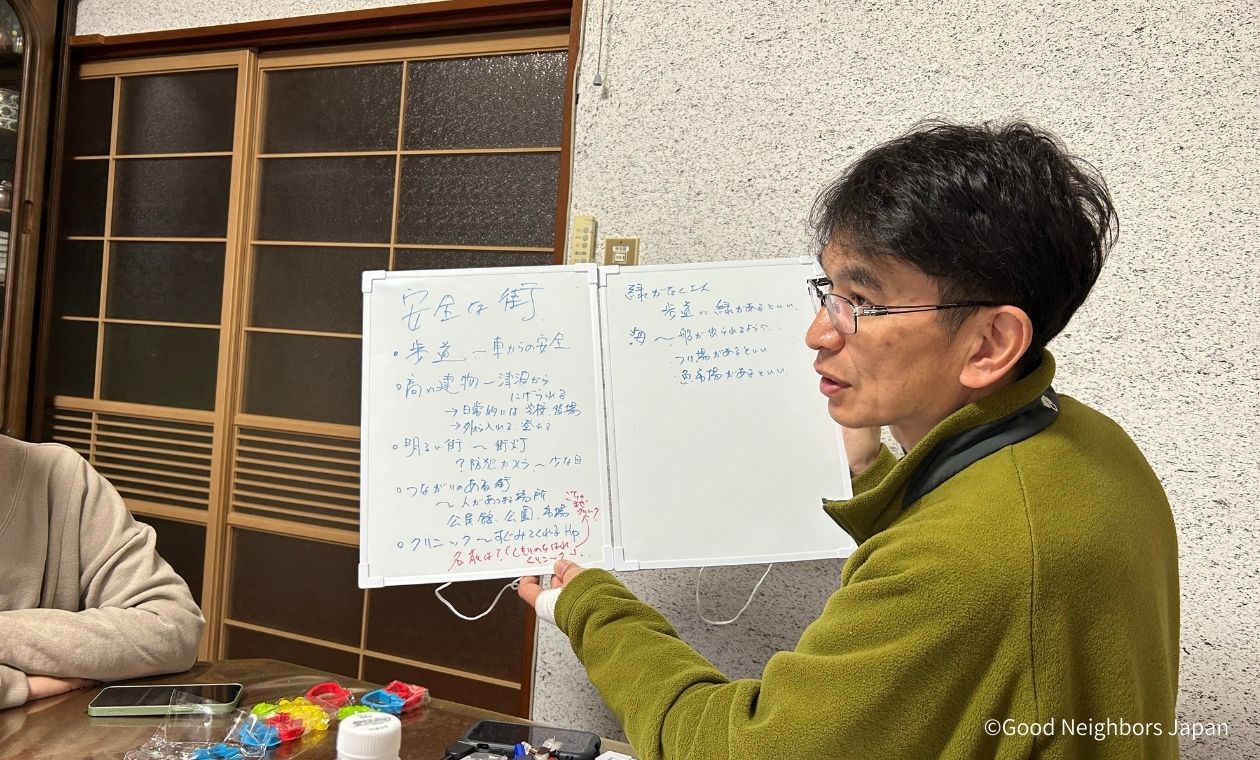 安全な街
・歩道 〜車からの安全
・高い建物 〜津波から
にげられる
→日常的には 学校、市場
→外から入れる 登れる
・明るい街 〜 街灯
?防犯カメラ〜
・つながりのある街
〜人があつまる場所
公民館、公園、市場
・クリニック〜すぐみてくれるHp
名前は?「くもりのちはれ
クリニック」
緑がたくさん
歩道に緑があるといい、
海 〜 船が出られるように、
・つり場があるといい
・魚市場があるといい
©Good Neighbors Japan